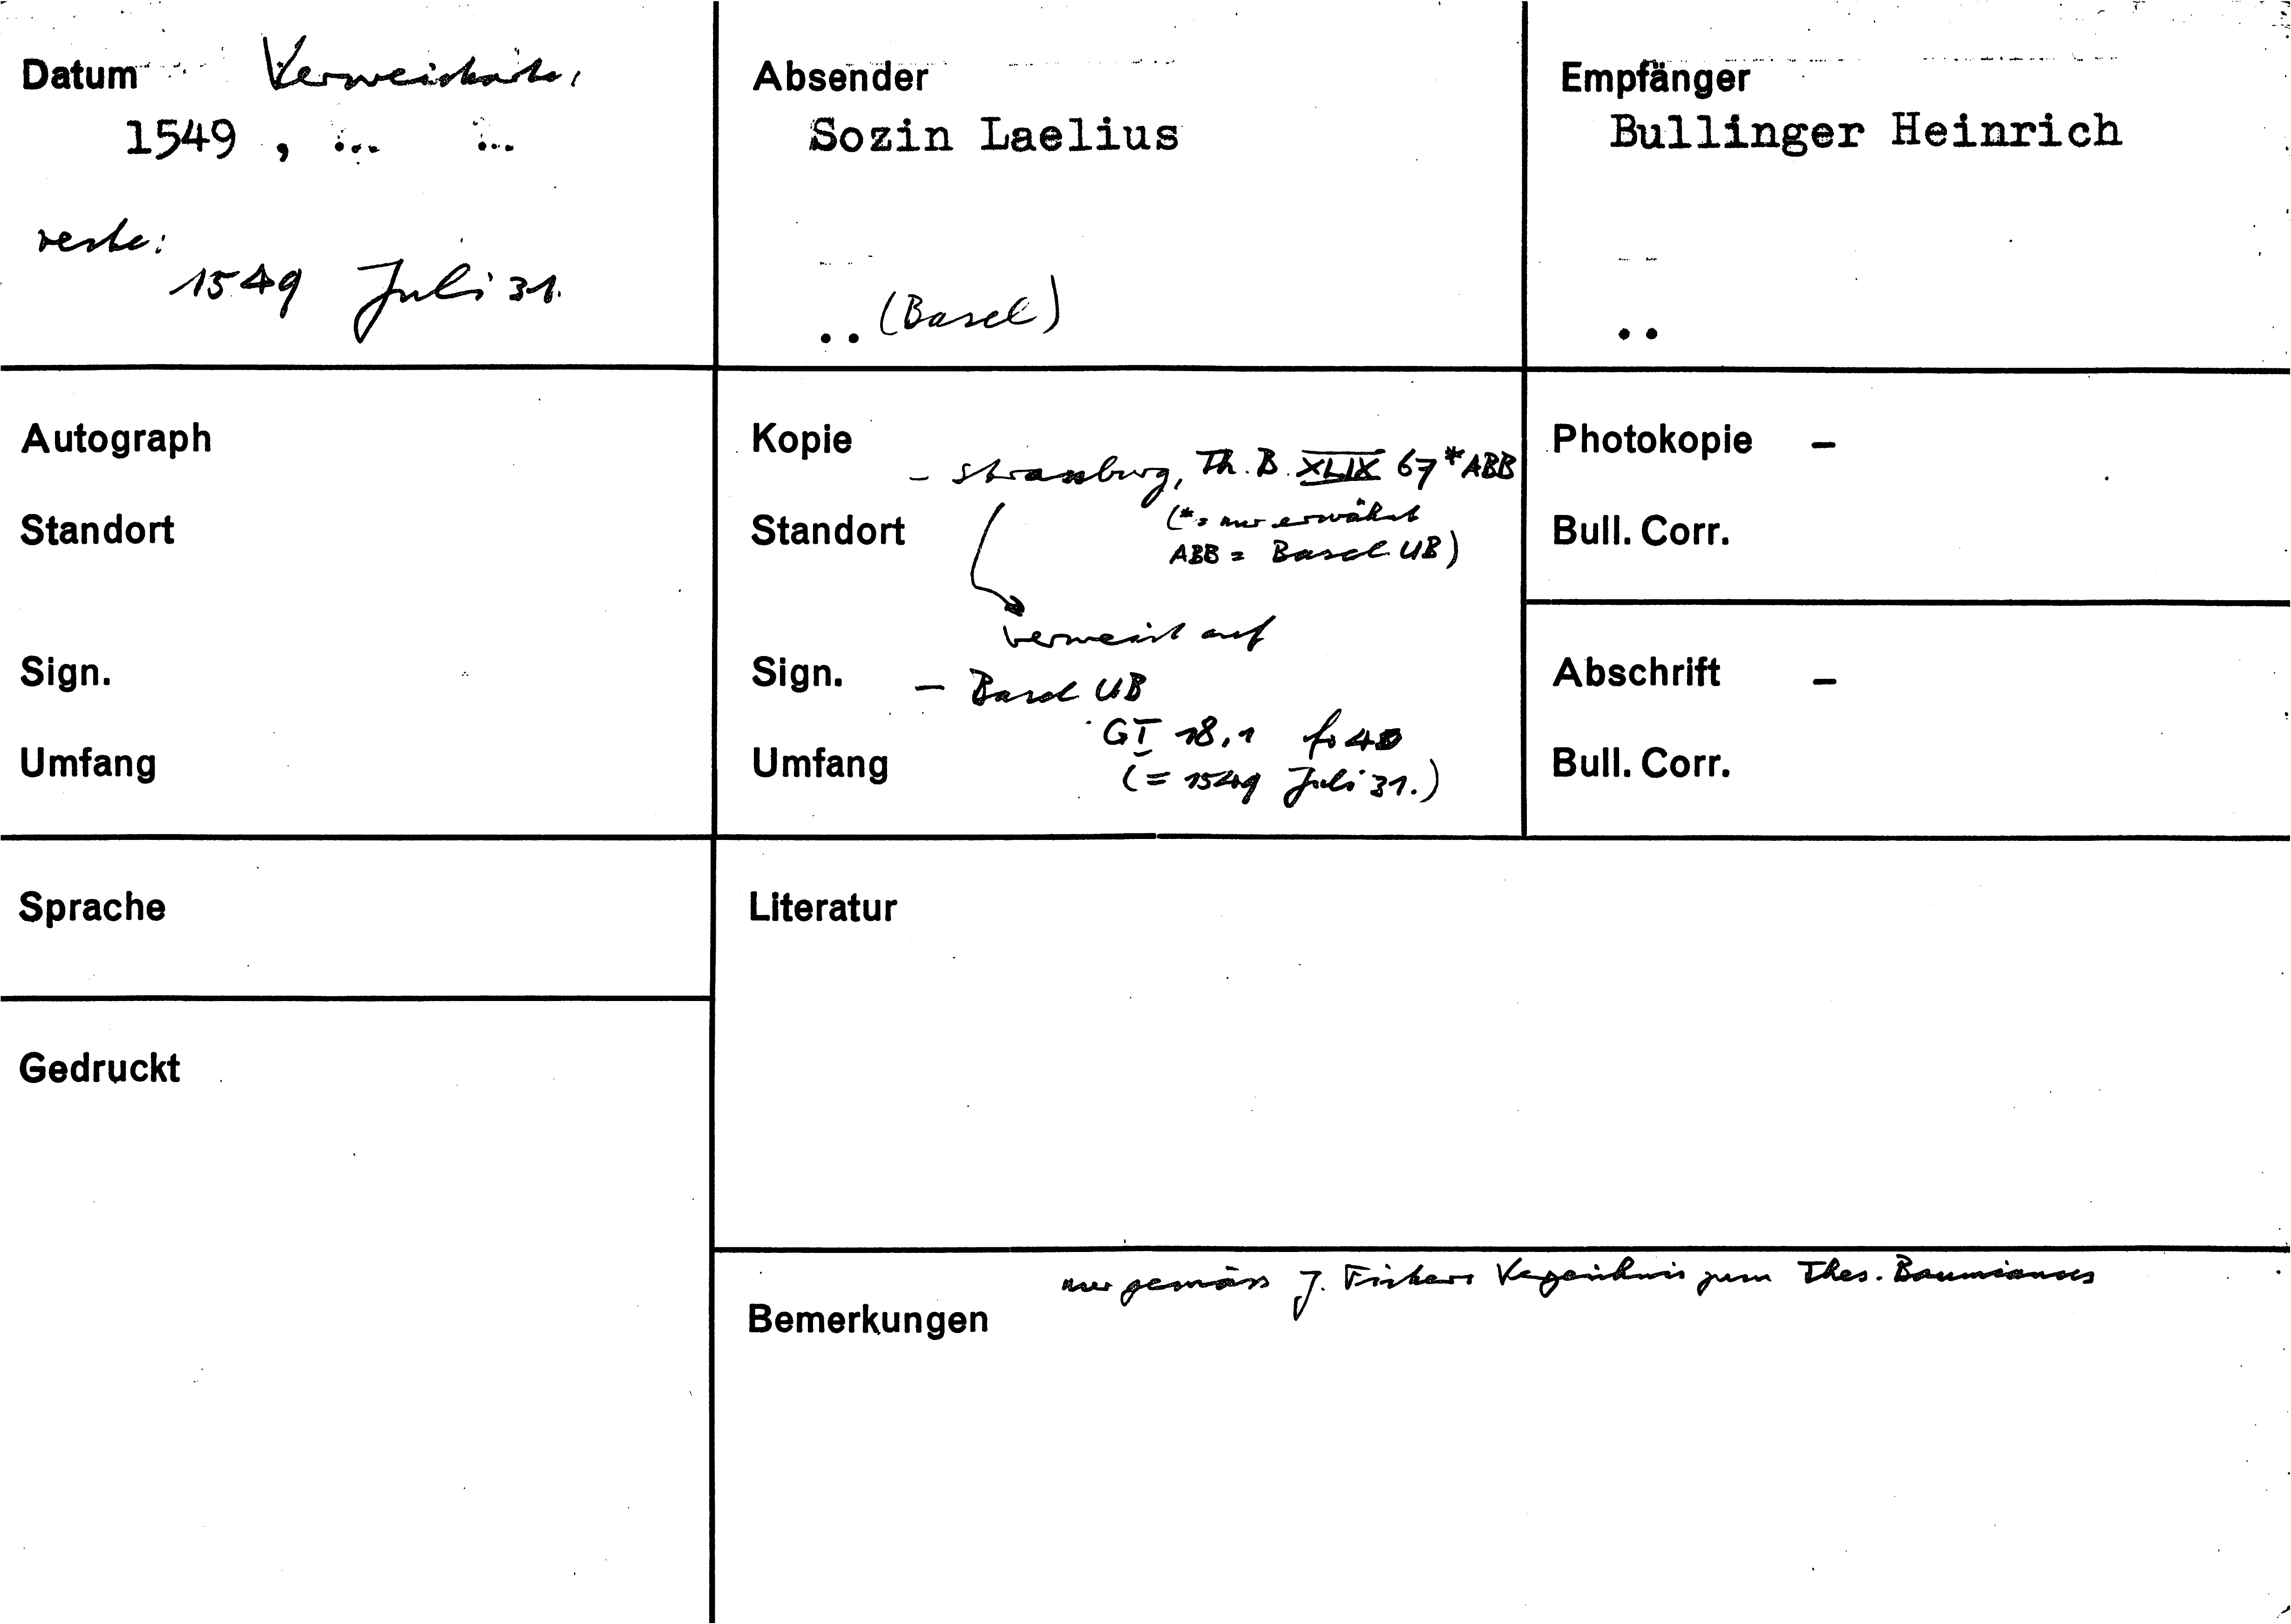 Datum Verweiskarte,
1549 , ... ...
recte:
1549 Juli 31.
Absender
Sozin Laelius
.. (Basel)
Empfänger
Bullinger Heinrich
..
Autograph
Standort
Sign.
Umfang
Kopie
- Strassburg, Th. B. XLIX 67 * ABB
Standort (* = nur erwähnt
ABB = Basel UB)
verweist auf
Sign. - Basel UB
G I 18,1 fo
Umfang (= 1549 Juli 31.)
Photokopie -
Bull. Corr.
Abschrift -
Bull. Corr.
Sprache
Gedruckt
Literatur
nur gemäss J. Fickers Verzeichnis zum Thes. Baumianus
Bemerkungen